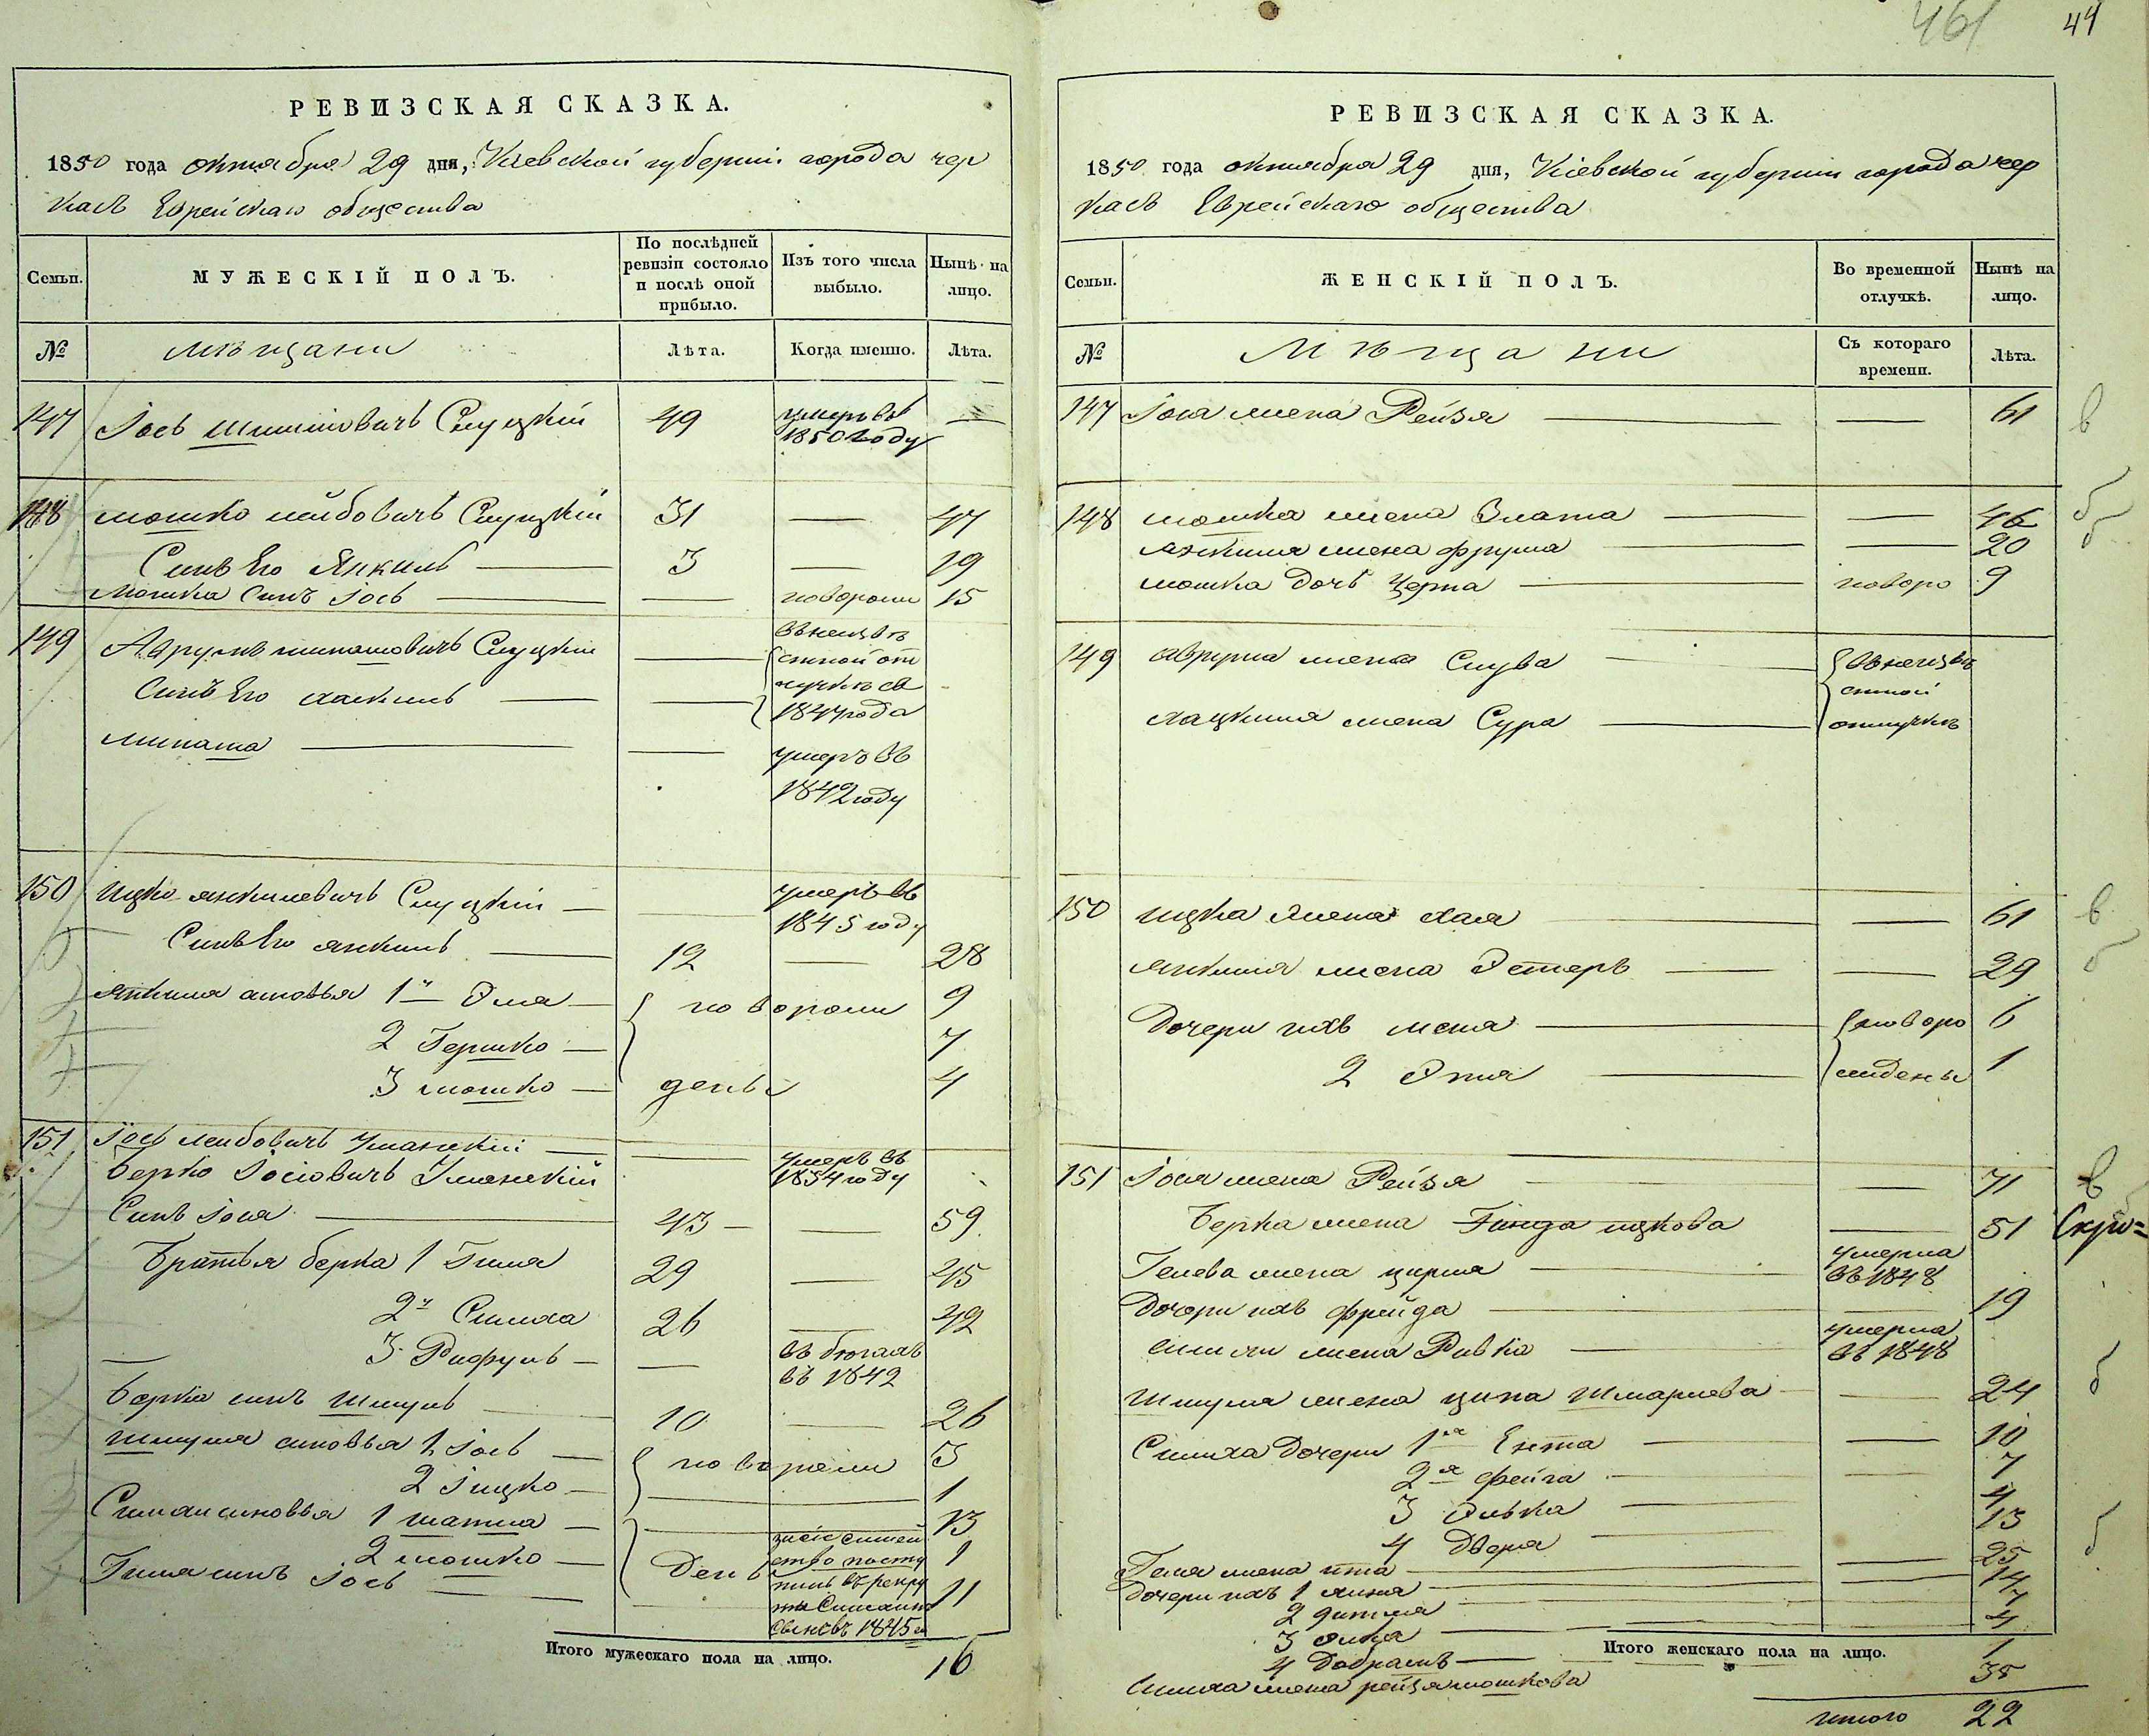 461 44
РЕВИЗСКАЯ СКАЗКА.
1850 года октября 29 дня, Кіевской губерніи города Чер
касъ Еврейскаго общества
Семьи.
МУЖЕСКІЙ ПОЛЪ.
По послѣдней
ревизіи состояло
и послѣ оной
прибыло.
Изъ того числа
выбыло.
Нынѣ на
лицо.
№
Мѣщани
Лѣта.
Когда именно.
Лѣта.
147 Іось Шмиловичъ Слуцкій 49 умеръ въ —
1850 году
148 Мошко Лейбовичъ Слуцкій 31 — 47
Синъ Его Янкиль — 3 — 19
Мошка Синъ Іось — — новорож 15
149 Аврумъ Слуцкій —
Синъ Его Хаскиль — —
въ неизвѣ
стной от
лучкѣ съ
1847 года
— — умеръ въ
1842 году
150 Ицко Янкилевичъ Слуцкій — умеръ въ
1845 году
Синъ Его Янкиль — 12 — 28
Янкиля сыновья 1й Эля — новорож 9
2 Гершко — 7
3 Мошко — дены 4
151 Іось Лейбовичъ Уманскій — — умеръ въ
1834 году
Берко Іосіовичъ Уманскій
Синъ Іося — 43 — — 59
Братья Берка 1 Гиля 29 — 45
2й Симха 26 — 42
3 Рафуль — — въ бѣгахъ
въ 1842
Берка синъ Шмуль — 10 — 26
Шмуля сыновья 1 Іось — новорож 3
2 Іицко — — 1
Симхи сыновья 1 — 13
2 Мошко — ден 1
Гиля синъ Іось — 11
семей
ство посту
пилъ въ рекру
ты
1845
Итого мужескаго пола на лицо. 16
РЕВИЗСКАЯ СКАЗКА.
1850 года октября 29 дня, Кіевской губерніи города Чер
касъ Еврейскаго общества
Семьи.
ЖЕНСКІЙ ПОЛЪ.
Во временной
отлучкѣ.
Нынѣ на
лицо.
№
Мѣщани
Съ котораго
времени.
Лѣта.
147 Іося жена Рейзя — — 61 в
148 Мошка жена Злата — — 46 б
Янкиля жена Фрума — — 20 б
Мошка дочь Черна — новоро 9
149 Аврума жена Слува —
Хацкиля жена Сура —
въ неизвѣ
стной
отлучкѣ
150 Ицка жена Хая — — 61 в
Янкиля жена Эстеръ — — 29 б
Дочери ихъ Меня — новоро 6
2 Этя — ждены 1
151 Іося жена Рейзя — — 71 в
Берка жена Гинда Ицкова — 51 Скри=
Гелева жена Цирля — умерла
въ 1848
Дочери ихъ Фрейда — — 19
Симхи жена Ривка — умерла
въ 1848
Шмуля жена Ципа Шмарiева — — 24 б
Симха дочери 1я Ента — — 10
2я Фейга — 7
3 Ривка — 4
4 Двера — 13 б
Геля жена — — 25
Дочери ихъ 1 — 14
2 — 7
3 — 4
4 Добрашъ — 1
Симха жена Рейзя Мошкова 35
Итого женскаго пола на лицо.
итого 22